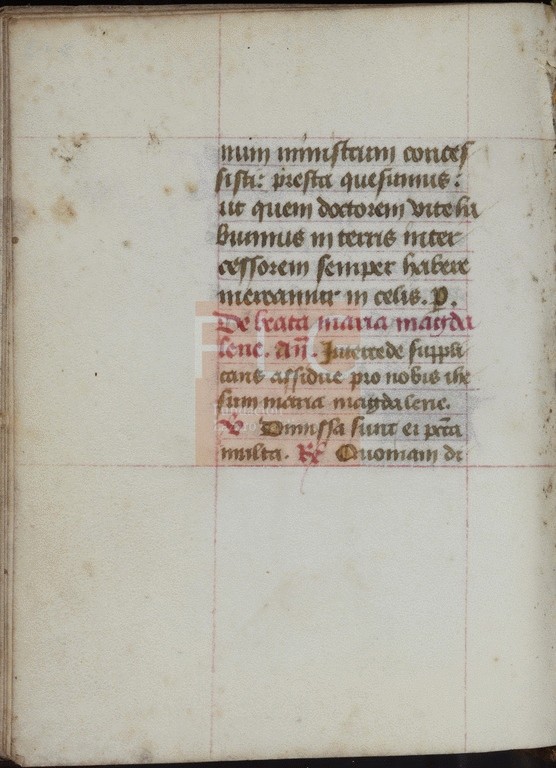 num ministrum conces
sisti: presta quesumus:
ut quem doctorem vite ha
buimus in terris inter
cessorem semper habere
mereamur in celis. P.
De beata maria magda
lene. añ. Intercede suppli
cans assidue pro nobis ihe
sum maria magdalene.
V Dimissa sunt ei pctã
multa. R Quoniam di